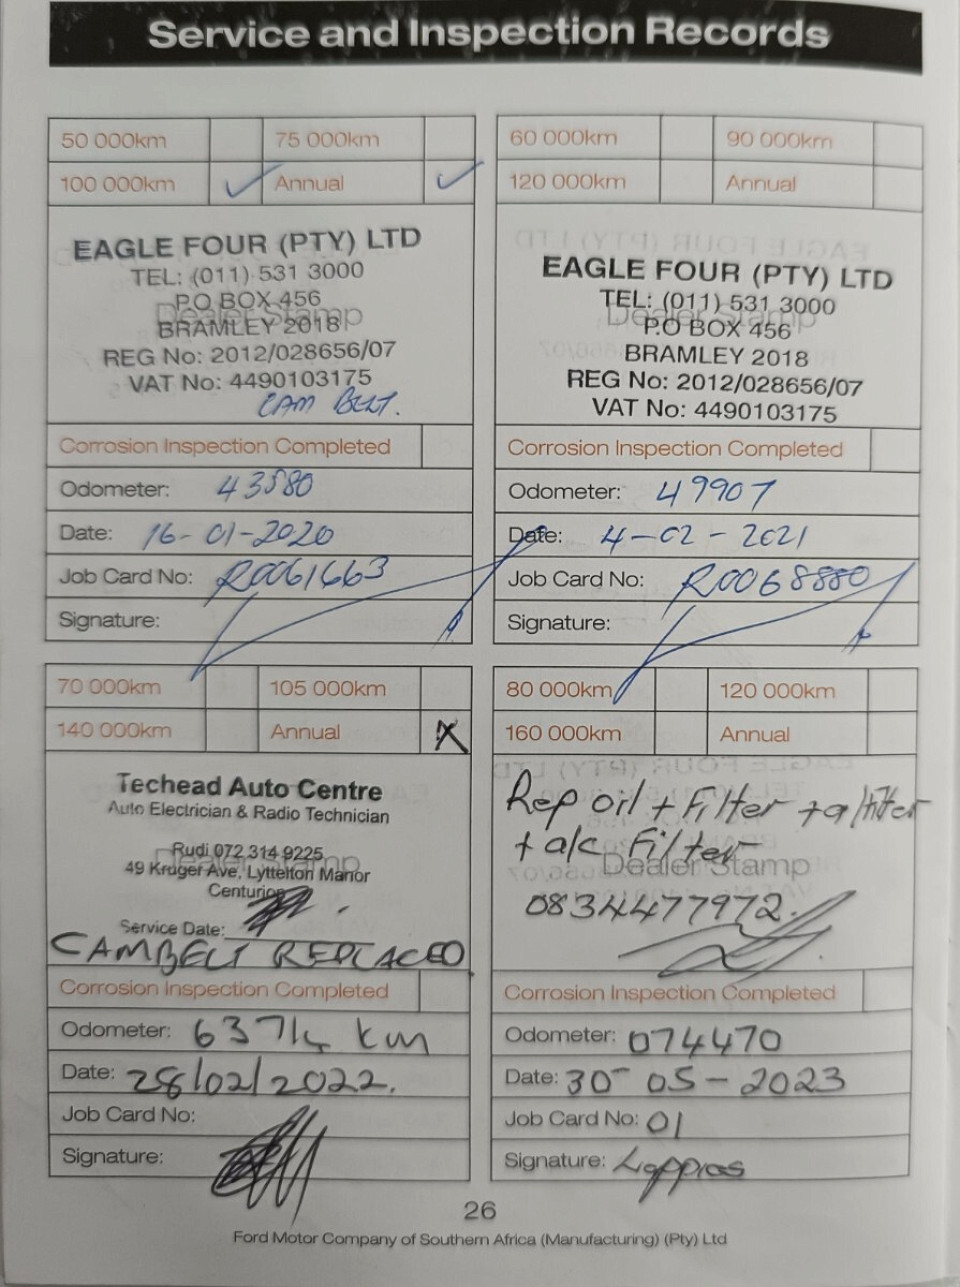 Service and Inspection Records
50 000km 75 000km
100 000km ✓ Annual ✓
EAGLE FOUR (PTY) LTD
TEL: (011) 531 3000
P.O BOX 456
Dealer Stamp
BRAMLEY 2018
REG No: 2012/028656/07
VAT No: 4490103175
CAM BELT.
Corrosion Inspection Completed
Odometer: 43580
Date: 16-01-2020
Job Card No: R0061663
Signature:
60 000km 90 000km
120 000km Annual
EAGLE FOUR (PTY) LTD
TEL: (011) 531 3000
Dealer Stamp
P.O BOX 456
BRAMLEY 2018
REG No: 2012/028656/07
VAT No: 4490103175
Corrosion Inspection Completed
Odometer: 49907
Date: 4-02-2021
Job Card No: R0068880
Signature:
70 000km 105 000km
140 000km Annual X
Techead Auto Centre
Auto Electrician & Radio Technician
Rudi 072 314 9225
Dealer Stamp
49 Kruger Ave, Lyttelton Manor
Centurion
Service Date:
CAMBELT REPLACED
Corrosion Inspection Completed
Odometer: 63714 km
Date: 28/02/2022.
Job Card No:
Signature:
80 000km 120 000km
160 000km Annual
Rep oil + Filter + a/filter
+ a/c Filter
Dealer Stamp
0834477972.
Corrosion Inspection Completed
Odometer: 074470
Date: 30-05-2023
Job Card No: 01
Signature:
26
Ford Motor Company of Southern Africa (Manufacturing) (Pty) Ltd